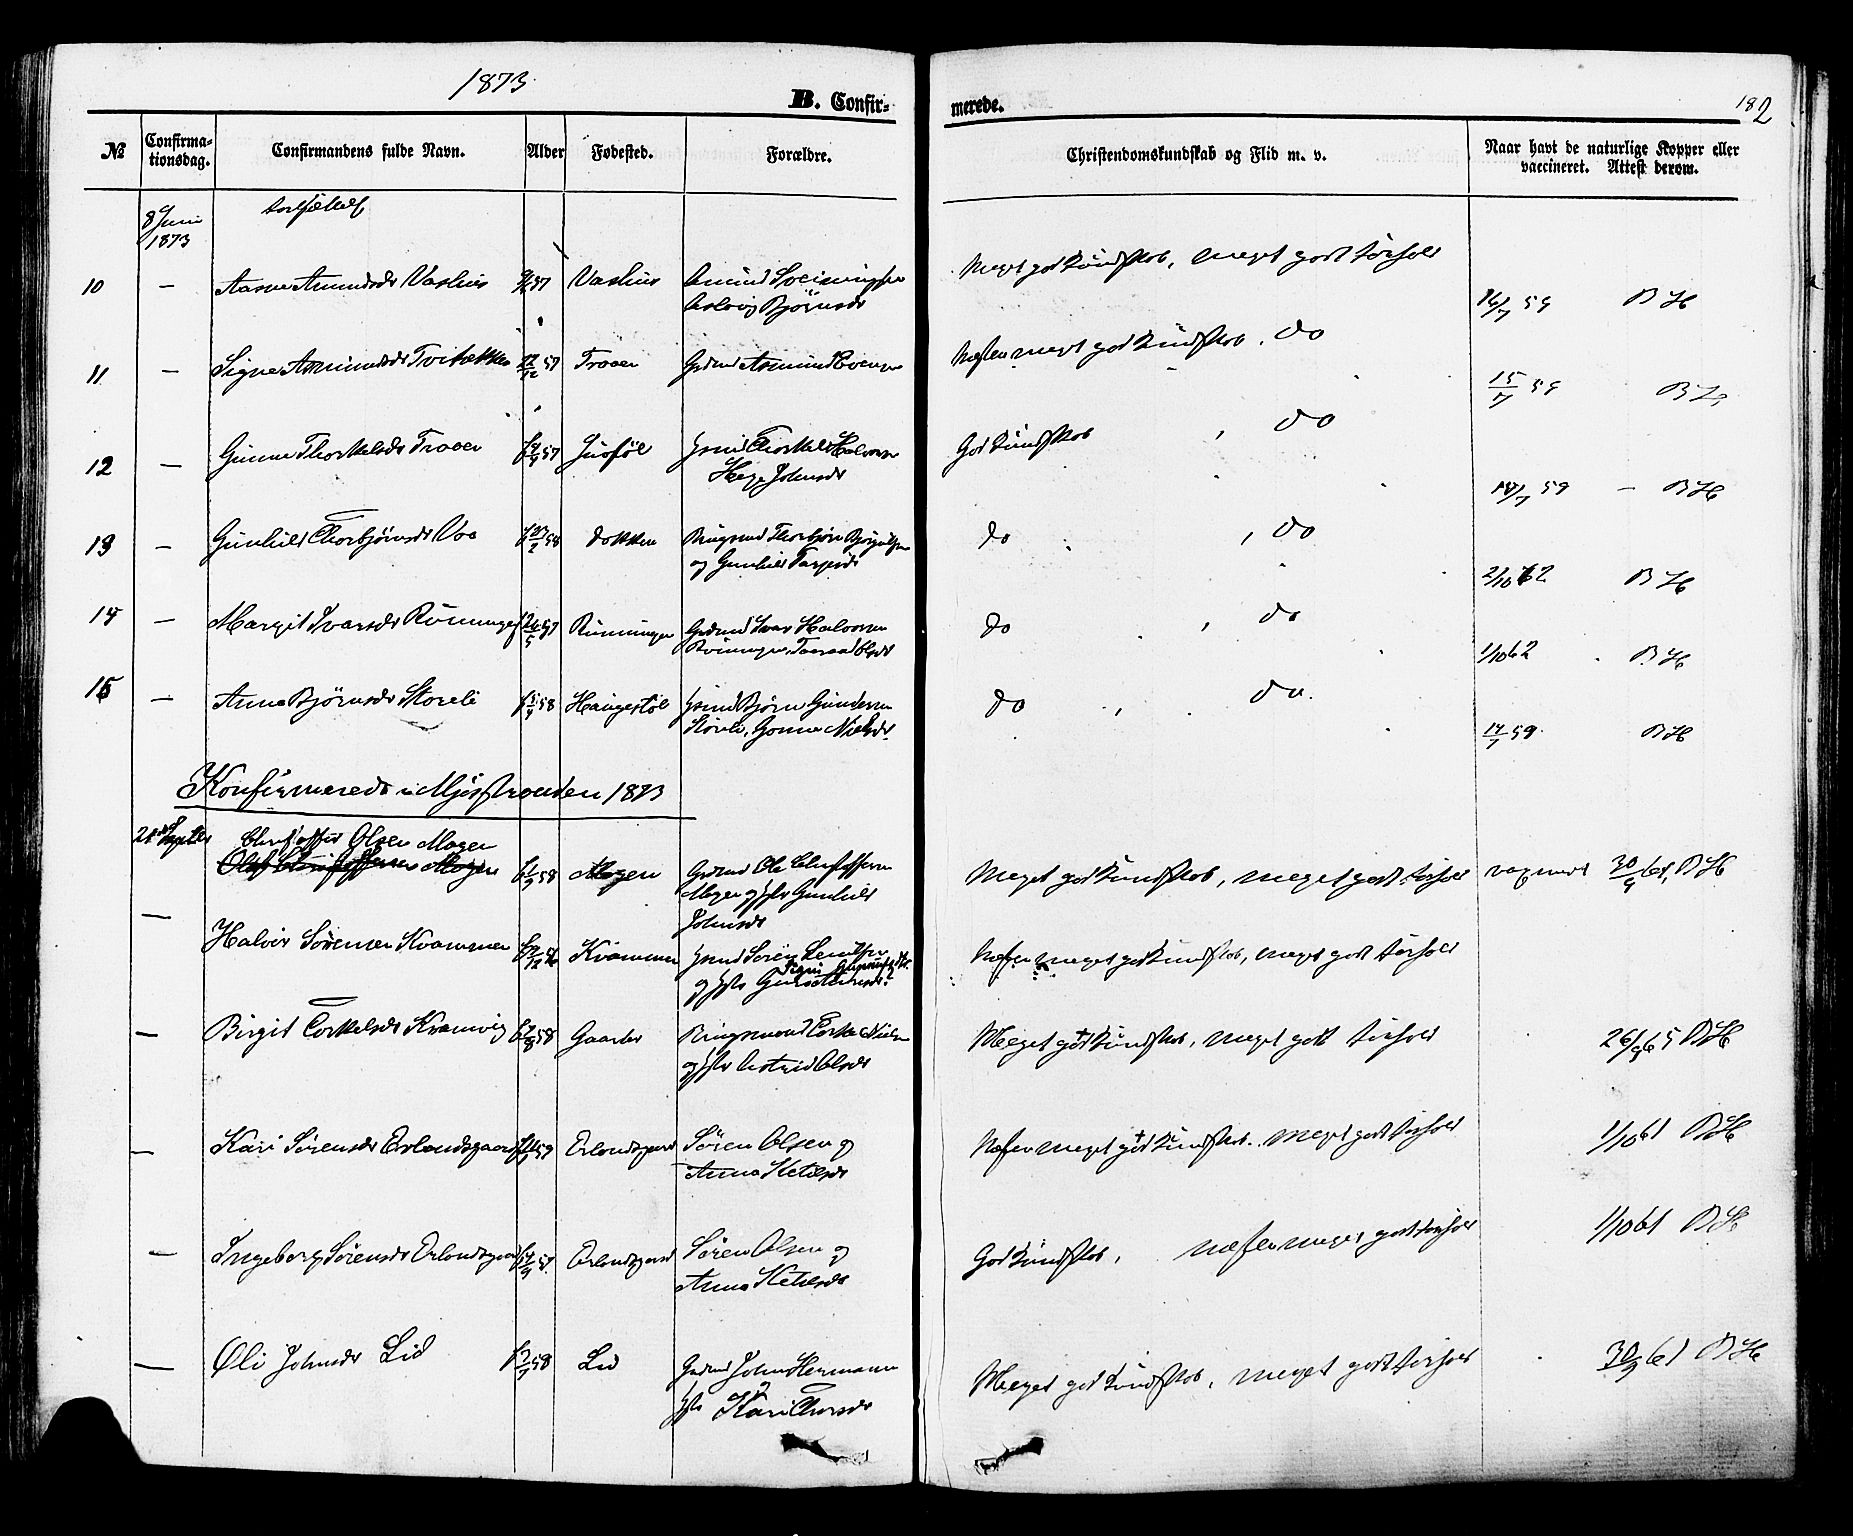 1873
B. Confirmerede.
182
№ Confirmationsdag. Confirmandens fulde Navn. Alder Fødested. Forældre. Christendomskundskab og Flid m. v. Naar havt de naturlige Kopper eller vaccineret. Attest derom.
8 Juni 1873
10 — Aasne Amundsdr Vaslius 57 Vaslius Amund Sveinungsen Aslaug Bjørnsdr Meget god Kundskab, meget godt Forhold 16/7 59 BH
11 — Signe Asmundsdr 57 Traaen Grdmd Asmund Evensen Næsten meget god Kundskab, do 15/7 59 BH
12 — Gunne Thorkelsdr Traaen 57 Hsmd Thorkel Halvorsen Hege Johnsdr God Kundskab, do 18/7 59 — BH
13 — Gunhild Thorbjørnsdr Vaa 58 Dokken Brugsmd Thorbjørn og Gunhild Tarjeisdr do, do 2/10 62 BH
14 — Margit Ivarsdr Rönningen 57 Rönningen Grdmd Ivar Halvorsen Rönningen, do, do 1/10 62 BH
15 — Anne Bjørnsdr Storeli 58 Haugestöl Hsmd Bjørn Gundersen Storeli, Gonne Nielsdr do, do. 17/7 59 BH
Konfirmerede i Mjösstranden 1873
21de Septbr Christoffer Olsen Mogen
Olaf Christoffersen Mogen 58 Mogen Grdmd Ole Christoffersen Mogen og Hstr Gunhild Johnsdr Meget god Kundskab, meget godt Forhold 30/9 61, BH
— Halvor Sørensen Kvammen 12 56 Kvammen Hsmd Sören og Hstr Næsten meget god Kundskab, meget godt Forhold
— Birgit Torkelsdr Kvamvig 58 Gaarder Brugsmand Torkel Nielsen og Hstr Astrid Olsdr Meget god Kundskab, meget godt Forhold 26/9 65 BH
— Kari Sørensdr Erlandsgaard 59 Erlandsgaard Søren Olsen og Anne Ketilsdr Næsten meget god Kundskab. meget godt Forhold 1/10 61 BH
— Ingeborg Sørensdr Erlandsgaard 57 Erlandsgaard Søren Olsen og Anne Ketilsdr God Kundskab, næsten meget godt Forhold 1/10 61 BH
— Øli Johnsdr Lid 58 Lid Grdmd John Hermansen Hstr Kari Thorsdr Meget god Kundskab, meget godt Forhold 30/9 61 BH